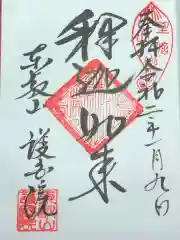 奉拝 令和二年一月九日
釋迦如来
東叡山
護国院